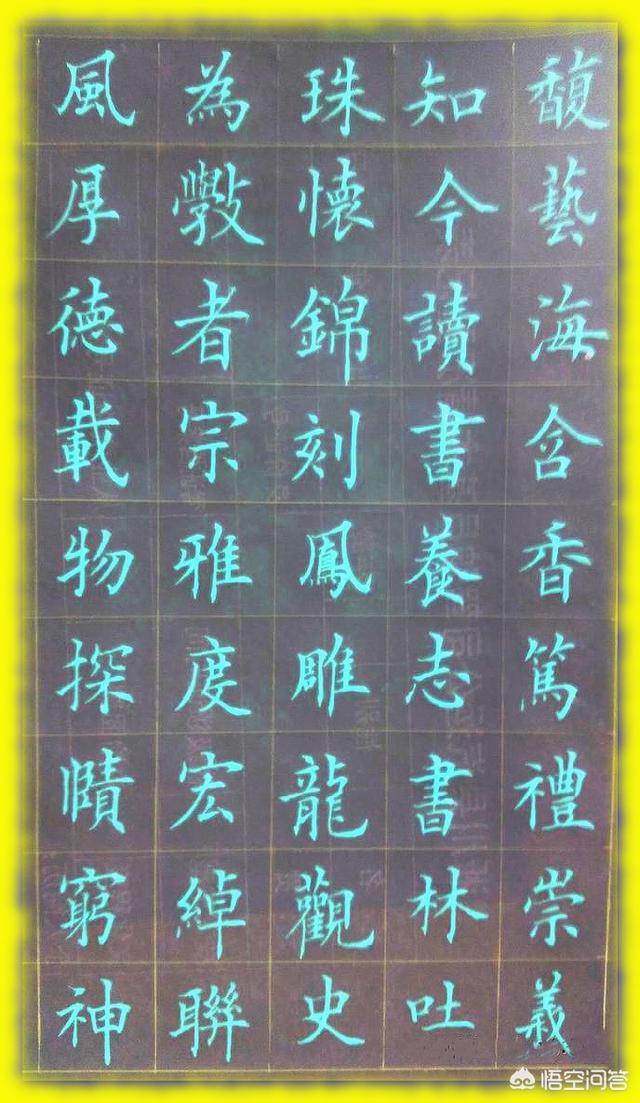 馥藝海含香篤禮崇義
知今讀書養志書林吐
珠懷錦刻鳳雕龍觀史
為斅者宗雅度宏綽聯
風厚德載物探賾窮神
悟空问答